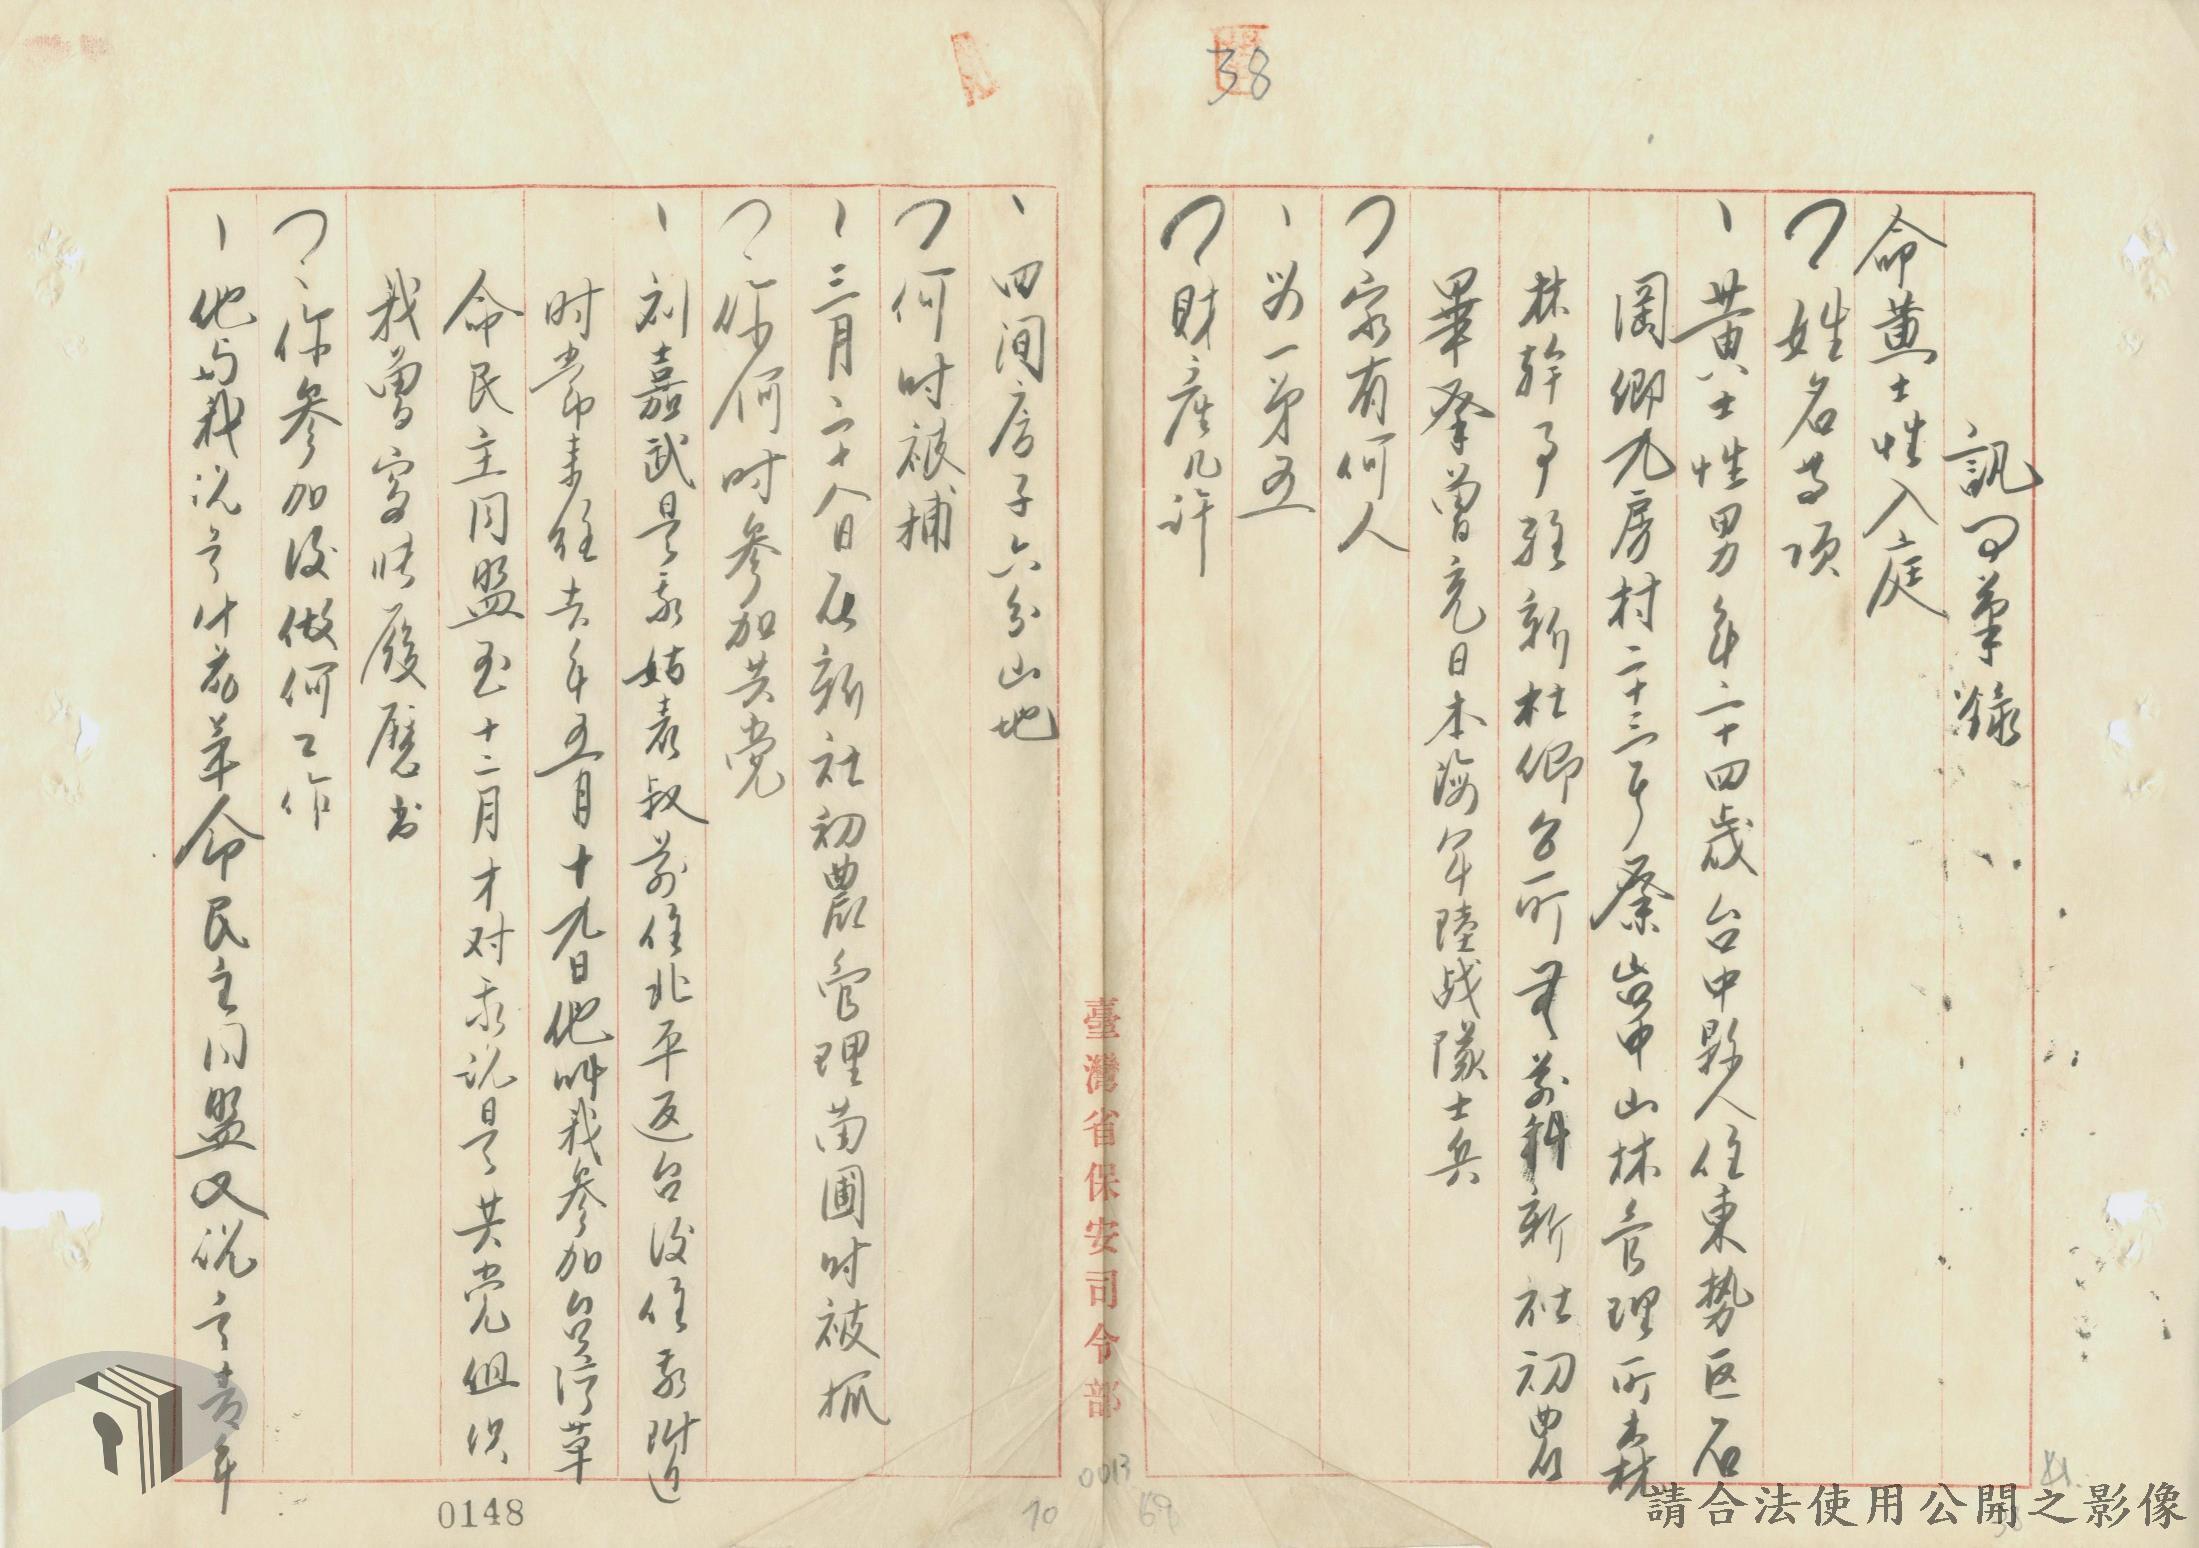 38
訊問筆錄
命黄士性入庭
姓名等項
黄士性男年二十四歲台中縣人住東勢区石
岡鄉九房村二十三号業台中山林管理所森
林幹事駐新社鄉公所無前科新社初農
畢業曾充日本海軍陸战隊士兵
家有何人
父一弟五
財產几許
四间房子六分山地
何时被捕
三月二十八日在新社初農管理苗圃时被抓
你何时參加共党
刘嘉武是我姑表叔前住北平返台後住我附近
时常来往去年五月十九日他叫我參加台湾革
命民主同盟至十二月才对我说是共党组织
我曾寫呋履歷书
你參加後做何工作
他与我说是什麼革命民主同盟又说是青年
臺灣省保安司令部
0013
0148
70
69
請合法使用公開之影像